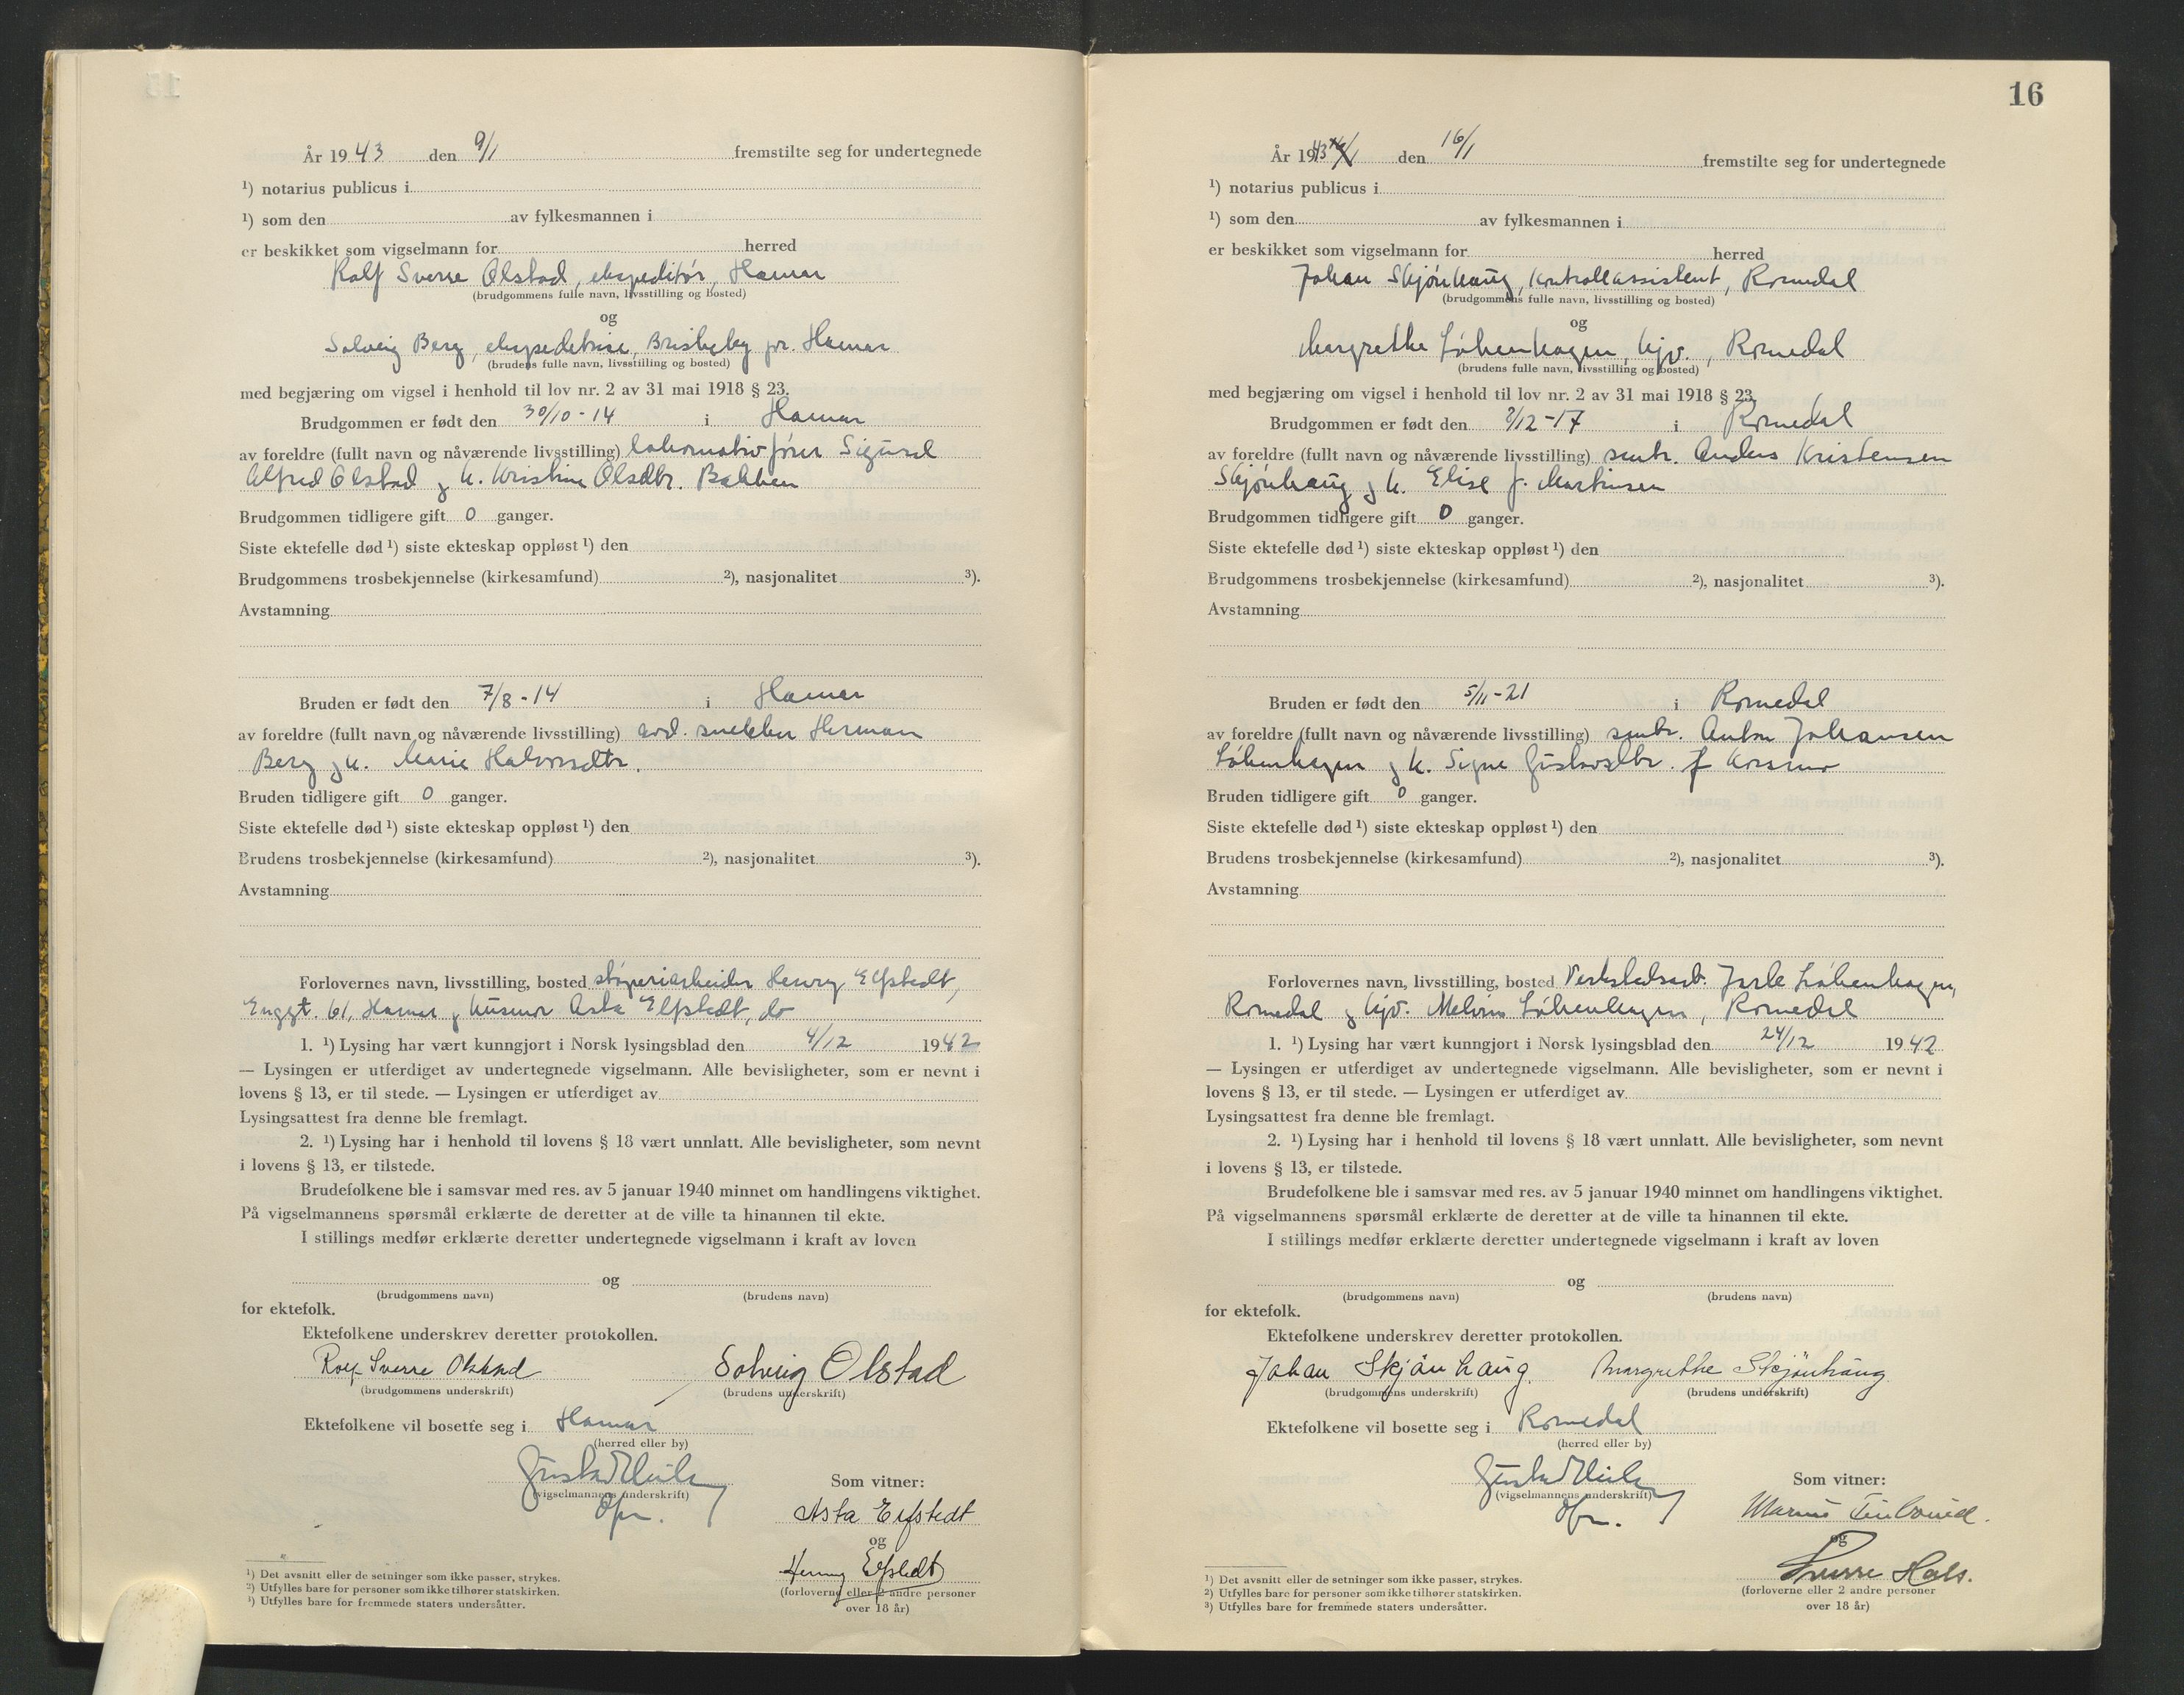 År 1943 den 9/1 fremstilte seg for undertegnede
¹) notarius publicus i
¹) som den av fylkesmannen i
er beskikket som vigselmann for herred
Rolf Sverre Olstad, ekspeditør, Hamar
(brudgommens fulle navn, livsstilling og bosted)
og
Solveig Berg, ekspeditrise, Briskeby pr. Hamar
(brudens fulle navn, livsstilling og bosted)
med begjæring om vigsel i henhold til lov nr. 2 av 31 mai 1918 § 23.
Brudgommen er født den 30/10-14 i Hamar
av foreldre (fullt navn og nåværende livsstilling) lokomotivfører Sigurd
Alfred Olstad og h. Kristine Olsdtr. Bakken
Brudgommen tidligere gift 0 ganger.
Siste ektefelle død ¹) siste ekteskap oppløst ¹) den
Brudgommens trosbekjennelse (kirkesamfund) ²), nasjonalitet ³).
Avstamning
Bruden er født den 7/8-14 i Hamar
av foreldre (fullt navn og nåværende livsstilling) avd. snekker Herman
Berg og h. Marie Halvorsdtr.
Bruden tidligere gift 0 ganger.
Siste ektefelle død ¹) siste ekteskap oppløst ¹) den
Brudens trosbekjennelse (kirkesamfund) ²), nasjonalitet ³).
Avstamning
Forlovernes navn, livsstilling, bosted støperiarbeider Henry Elfstedt,
Enggt. 61, Hamar og husmor Asta Elfstedt, do
1. ¹) Lysing har vært kunngjort i Norsk lysingsblad den 4/12 1942
— Lysingen er utferdiget av undertegnede vigselmann. Alle bevisligheter, som er nevnt i
lovens § 13, er til stede. — Lysingen er utferdiget av
Lysingsattest fra denne ble fremlagt.
2. ¹) Lysing har i henhold til lovens § 18 vært unnlatt. Alle bevisligheter, som nevnt
i lovens § 13, er tilstede.
Brudefolkene ble i samsvar med res. av 5 januar 1940 minnet om handlingens viktighet.
På vigselmannens spørsmål erklærte de deretter at de ville ta hinannen til ekte.
I stillings medfør erklærte deretter undertegnede vigselmann i kraft av loven
og
(brudgommens navn) (brudens navn)
for ektefolk.
Ektefolkene underskrev deretter protokollen.
Rolf Sverre Olstad Solveig Olstad
(brudgommens underskrift) (brudens underskrift)
Ektefolkene vil bosette seg i Hamar
(herred eller by)
(vigselmannens underskrift)
Som vitner:
Asta Elfstedt
og
Henry Elfstedt
(forloverne eller 2 andre personer
over 18 år)
¹) Det avsnitt eller de setninger som ikke passer, strykes.
²) Utfylles bare for personer som ikke tilhører statskirken.
³) Utfylles bare for fremmede staters undersåtter.
16
År 1943 den 16/1 fremstilte seg for undertegnede
¹) notarius publicus i
¹) som den av fylkesmannen i
er beskikket som vigselmann for herred
Johan Skjønhaug, kontrollassistent, Romedal
(brudgommens fulle navn, livsstilling og bosted)
og
Margrethe Løkenhagen, hjv., Romedal
(brudens fulle navn, livsstilling og bosted)
med begjæring om vigsel i henhold til lov nr. 2 av 31 mai 1918 § 23.
Brudgommen er født den /12-17 i Romedal
av foreldre (fullt navn og nåværende livsstilling) smbr. Anders Kristensen
Skjønhaug og h. Elise f. Martinsen
Brudgommen tidligere gift 0 ganger.
Siste ektefelle død ¹) siste ekteskap oppløst ¹) den
Brudgommens trosbekjennelse (kirkesamfund) ²), nasjonalitet ³).
Avstamning
Bruden er født den 5/11-21 i Romedal
av foreldre (fullt navn og nåværende livsstilling) smbr. Anton Johansen
Løkenhagen og h. Signe Gustavsdtr. f. Korsmo
Bruden tidligere gift 0 ganger.
Siste ektefelle død ¹) siste ekteskap oppløst ¹) den
Brudens trosbekjennelse (kirkesamfund) ²), nasjonalitet ³).
Avstamning
Forlovernes navn, livsstilling, bosted Verkstedsarb. Jarle Løkenhagen,
Romedal og hjv. Løkenhagen, Romedal
1. ¹) Lysing har vært kunngjort i Norsk lysingsblad den 24/12 1942
— Lysingen er utferdiget av undertegnede vigselmann. Alle bevisligheter, som er nevnt i
lovens § 13, er til stede. — Lysingen er utferdiget av
Lysingsattest fra denne ble fremlagt.
2. ¹) Lysing har i henhold til lovens § 18 vært unnlatt. Alle bevisligheter, som nevnt
i lovens § 13, er tilstede.
Brudefolkene ble i samsvar med res. av 5 januar 1940 minnet om handlingens viktighet.
På vigselmannens spørsmål erklærte de deretter at de ville ta hinannen til ekte.
I stillings medfør erklærte deretter undertegnede vigselmann i kraft av loven
og
(brudgommens navn) (brudens navn)
for ektefolk.
Ektefolkene underskrev deretter protokollen.
Johan Skjønhaug. Margrethe Skjønhaug
(brudgommens underskrift) (brudens underskrift)
Ektefolkene vil bosette seg i Romedal
(herred eller by)
(vigselmannens underskrift)
Som vitner:
og
Sverre Hals.
(forloverne eller 2 andre personer
over 18 år)
¹) Det avsnitt eller de setninger som ikke passer, strykes.
²) Utfylles bare for personer som ikke tilhører statskirken.
³) Utfylles bare for fremmede staters undersåtter.